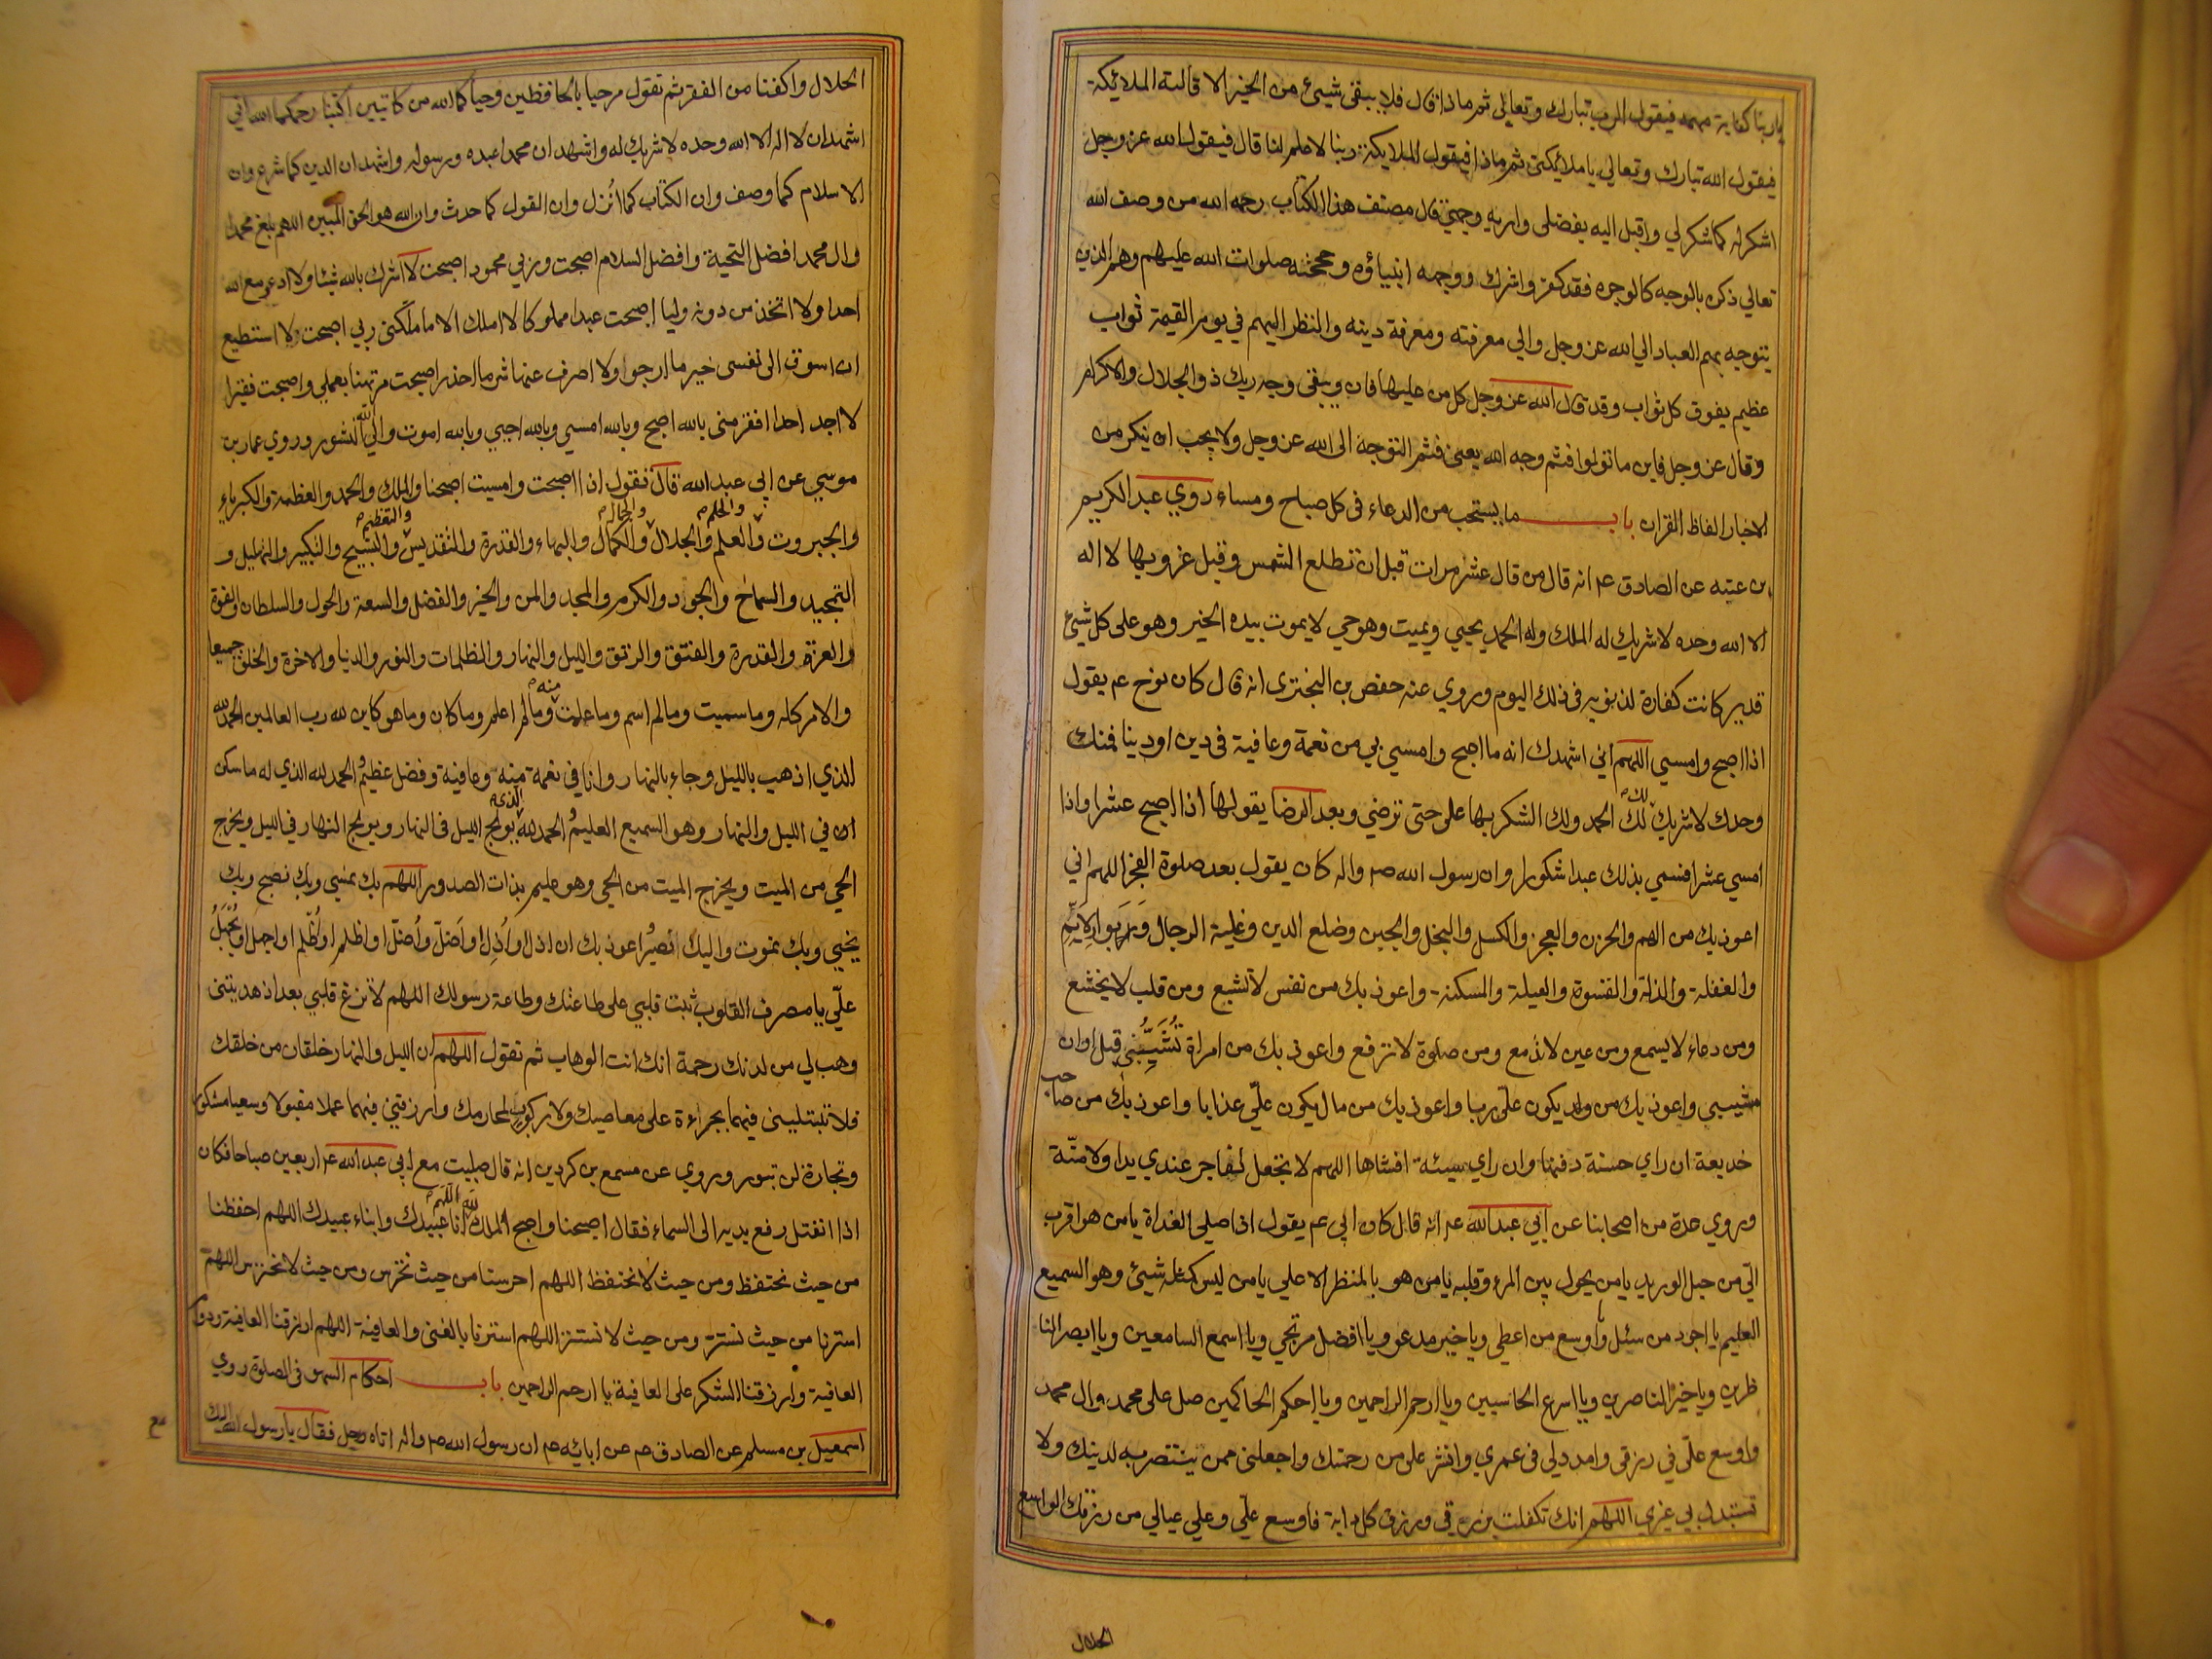 ياربنا كفاية مهمه فيقول الرب تبارك وتعالي ثم ماذا قال فلا يبقي شيئ من الخير الا قالته الملائيكة
فيقول الله تبارك وتعالي يا ملائيكتي ثم ماذا فيقول الملايكة ربنا لا علم لنا قال فيقول الله عز وجل
اشكر له كما شكر لي واقبل اليه بفضلى واريه وجهي قال مصنف هذا الكتاب رحمه الله من وصف الله
تعالي ذكره بالوجه كالوجوه فقد كفر واشرك ووجهه انبياؤه وحججه صلوات الله عليهم وهم الذين
يتوجه بهم العباد الي الله عز وجل والي معرفته ومعرفة دينه والنظر اليهم في يوم القيمة ثواب
عظيم يفوق كل ثواب وقد قال الله عز وجل كل من عليها فان ويبقى وجه ربك ذو الجلال والاكرام
وقال عز وجل فاين ما تولوا فثم وجه الله يعني فثم التوجه الى الله عز وجل ولا يجب ان ينكر من
الاخبار الفاظ القران باب ما يستحب من الدعاء فى كل صباح ومساء روي عبد الكريم
بن عتبه عن الصادق ع انه قال من قال عشر مرات قبل ان تطلع الشمس وقبل غروبها لا اله
الا الله وحده لا شريك له الملك وله الحمد يحيي ويميت وهو حي لا يموت بيده الخير وهو على كل شيئ
قدير كانت كفارة لذنوبه فى ذلك اليوم وروي عنه حفص بن البختري انه قال كان نوح عم يقول
اذا اصبح وامسي اللهم اني اشهدك انه ما اصبح وامسي بي من نعمة وعافية فى دين او دنيا فمنك
وحدك لا شريك لك لك الحمد ولك الشكر بها على حتى ترضي وبعد الرضا يقولها اذا اصبح عشرا واذا
امسي عشرا فسمي بذلك عبدا شكورا وان رسول الله ص واله كان يقول بعد صلوة الفجر اللهم اني
اعوذ بك من الهم والحزن والعجز والكسل والبخل والجبن وضلع الدين وغلبة الرجال وبوار الايم
والغفلة والذلة والقسوة والعيلة والمسكنة واعوذ بك من نفس لا تشبع ومن قلب لا يخشع
ومن دعاء لا يسمع ومن عين لا تدمع ومن صلوة لا ترفع واعوذ بك من امراة تشيبني قبل اوان
مشيبي واعوذ بك من ولد يكون علي ربا واعوذ بك من مال يكون علي عذابا واعوذ بك من صاحب
خديعة ان راي حسنة دفنها وان راي سيئة افشاها اللهم لا تجعل لفاجر عندي يدا ولا منّة
وروي عدة من اصحابنا عن ابي عبد الله ع انه قال كان ابي عم يقول اذا صلي الغداة يا من هو اقرب
الي من حبل الوريد يا من يحول بين المرء وقلبه يا من هو بالمنظر الاعلي يا من ليس كمثله شيئ وهو السميع
العليم يا اجود من سئل واوسع من اعطى ويا خير مدعو ويا افضل مرتجي ويا اسمع السامعين ويا ابصر النا
ظرين ويا خير الناصرين ويا اسرع الحاسبين ويا ارحم الراحمين ويا احكم الحاكمين صل على محمد وال محمد
واوسع علّي في رزقي وامدد لي فى عمري وانشر على من رحمتك واجعلني ممن ينتصر به لدينك ولا
تستبدل بي غيري اللهم انك تكفلت برزقي ورزق كل دابة فاوسع علّي وعلي عيالي من رزقك الواسع
الحلال
الحلال واكفنا من الفقر ثم تقول مرحبا بالحافظين وحياكما الله من كاتبين اكتبا رحمكما الله اني
اشهد ان لا اله الا الله وحده لا شريك له واشهد ان محمدا عبده ورسوله واشهد ان الدين كما شرع وان
الاسلام كما وصف وان الكتاب كما انزل وان القول كما حدث وان الله هو الحق المبين اللهم بلغ محمدا
وال محمد افضل التحية وافضل السلام اصبحت وربي محمود اصبحت لا اشرك بالله شيئا ولا ادعو مع الله
احدا ولا اتخذ من دونه وليا اصبحت عبدا مملوكا لا املك الا ما ملكني ربي اصبحت ولا استطيع
ان اسوق الى نفسي خير ما ارجوا ولا اصرف عنها شر ما احذر اصبحت مرتهنا بعملي واصبحت فقيرا
لا اجد احدا افقر مني بالله اصبح وبالله امسي وبالله احيي وبالله اموت والي الله النشور وروي عمار بن
موسي عن ابي عبد الله قال تقول اذا اصبحت وامسيت اصبحنا والملك والحمد والعظمة والكبرياء
والجبروت والحلم والعلم والجلال والجمال والكمال والبهاء والقدرة والتقديس والتعظيم والتسبيح والتكبير والتهليل و
التمجيد والسماح والجود والكرم والمجد والمن والخير والفضل والسعة والحول والسلطان والقوة
والعزة والقدرة والفتق والرتق والليل والنهار والظلمات والنور والدنيا والاخرة والخلق جميعا
والامر كله وما سميت وما لم اسم وما علمت منه وما لم اعلم وما كان وما هو كاين لله رب العالمين الحمد لله
الذي اذهب بالليل وجاء بالنهار وانا في نعمة منه وعافية وفضل عظيم الحمد لله الذي له ما سكن
ان في الليل والنهار وهو السميع العليم الحمد لله الذي يولج الليل فى النهار ويولج النهار في الليل ويخرج
الحي من الميت ويخرج الميت من الحي وهو عليم بذات الصدور اللهم بك نمسي وبك نصبح وبك
نحيي وبك نموت واليك نصير اعوذ بك ان اذل او اُذل او اَضل او اُضل او اظلم او اُظلم او اجهل او يُجهل
علّي يا مصرف القلوب ثبت قلبي على طاعتك وطاعة رسولك اللهم لا تزغ قلبي بعد اذ هديتني
وهب لي من لدنك رحمة انك انت الوهاب ثم تقول اللهم ان الليل والنهار خلقان من خلقك
فلا تبتليني فيهما بجراءة على معاصيك ولا ركوب لمحارمك وارزقني فيهما عملا مقبولا وسعيا مشكورا
وتجارة لن تبور وروي عن مسمع بن كردين انه قال صليت مع ابي عبد الله ع اربعين صباحا فكان
اذا انفتل رفع يديه الى السماء فقال اصبحنا واصبح الملك لله اللهم انا عبيدك وابناء عبيدك اللهم احفظنا
من حيث نحتفظ ومن حيث لا نحتفظ اللهم احرسنا من حيث نحترس ومن حيث لا نحترس اللهم
استرنا من حيث نستتر ومن حيث لا نستتر اللهم استرنا بالغنى والعافية اللهم ارزقنا العافية ودوام
العافية وارزقنا الشكر على العافية يا ارحم الراحمين باب احكام السهو فى الصلوة روي
اسمعيل بن مسلم عن الصادق عم عن ابائه عم ان رسول الله ص واله اتاه رجل فقال يا رسول الله اليك